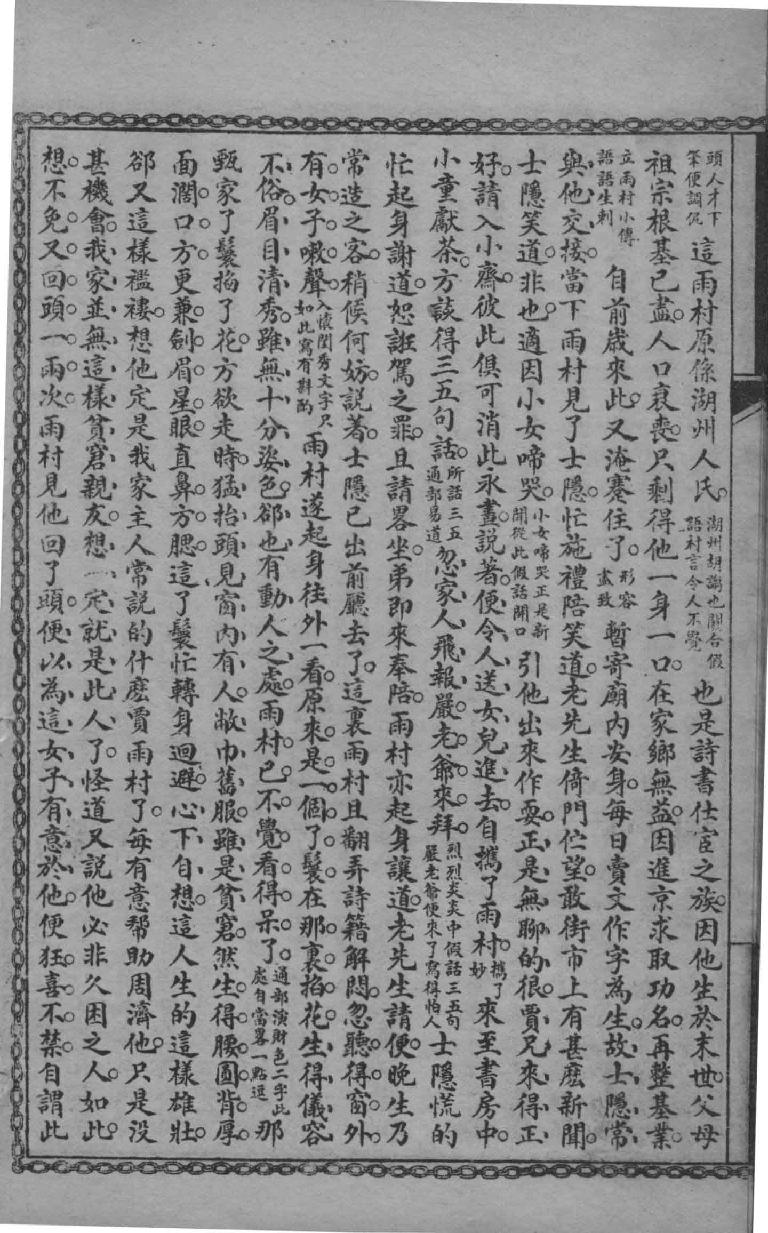 頭人才下筆便調侃這雨村原係湖州人氏湖州胡謅也關合假語村言令人不覺也是詩書仕宦之族因他生於末世父母
祖宗根基已盡人口衰喪只剩得他一身一口在家鄉無益因進京求取功名再整基業
立雨村小傳語語生刺自前歲來此又淹蹇住了形容盡致暫寄廟內安身每日賣文作字為生故士隱常
與他交接當下雨村見了士隱忙施禮陪笑道老先生倚門伫望敢街市上有甚麽新聞
士隱笑道非也適因小女啼哭小女啼哭正是新聞從此假話開口引他出來作耍正是無聊的很賈兄來得正
好請入小齋彼此俱可消此永晝說著便令人送女兒進去自攜了雨村攜了妙來至書房中
小童獻茶方談得三五句話所話三五通部易道忽家人飛報嚴老爺來拜烈烈炎炎中假話三五句嚴老爺便來了寫得怕人士隱慌的
忙起身謝道恕誑駕之罪且請畧坐弟即來奉陪雨村亦起身讓道老先生請便晚生乃
常造之客稍候何妨說著士隱已出前廳去了這裏雨村且翻弄詩籍解悶忽聽得窗外
有女子嗽聲入懷閨秀文字只如此寫有斟酌雨村遂起身往外一看原來是一個丫鬟在那裏掐花生得儀容
不俗眉目清秀雖無十分姿色郤也有動人之處雨村已不覺看得呆了通部演財色二字此處自當畧一點逗那
甄家丫鬟掐了花方欲走時猛抬頭見窗內有人敝巾舊服雖是貧窘然生得腰圓背厚
面濶口方更兼劍眉星眼直鼻方腮這丫鬟忙轉身迴避心下自想這人生的這樣雄壯
郤又這樣襤褸想他定是我家主人常說的什麽賈雨村了每有意幫助周濟他只是沒
甚機會我家並無這樣貧窘親友想一定就是此人了怪道又說他必非久困之人如此
想不免又回頭一兩次雨村見他回了頭便以為這女子有意於他便狂喜不禁自謂此